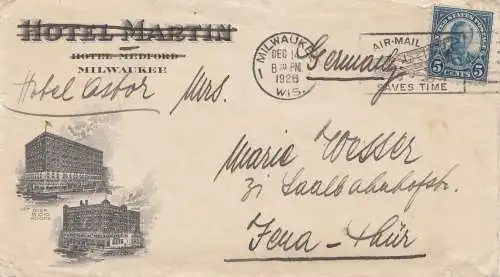 HOTEL MARTIN
HOTEL MEDFORD
MILWAUKEE
Hotel Astor
MILWAUKEE
DEC 14
8 PM
1926
WIS.
AIR-MAIL
SAVES TIME
5 CENTS 5
Germany
Mrs.
Marie Wesser
31 Saalbahnhofstr.
Jena - Thür
OVER
ROOMS